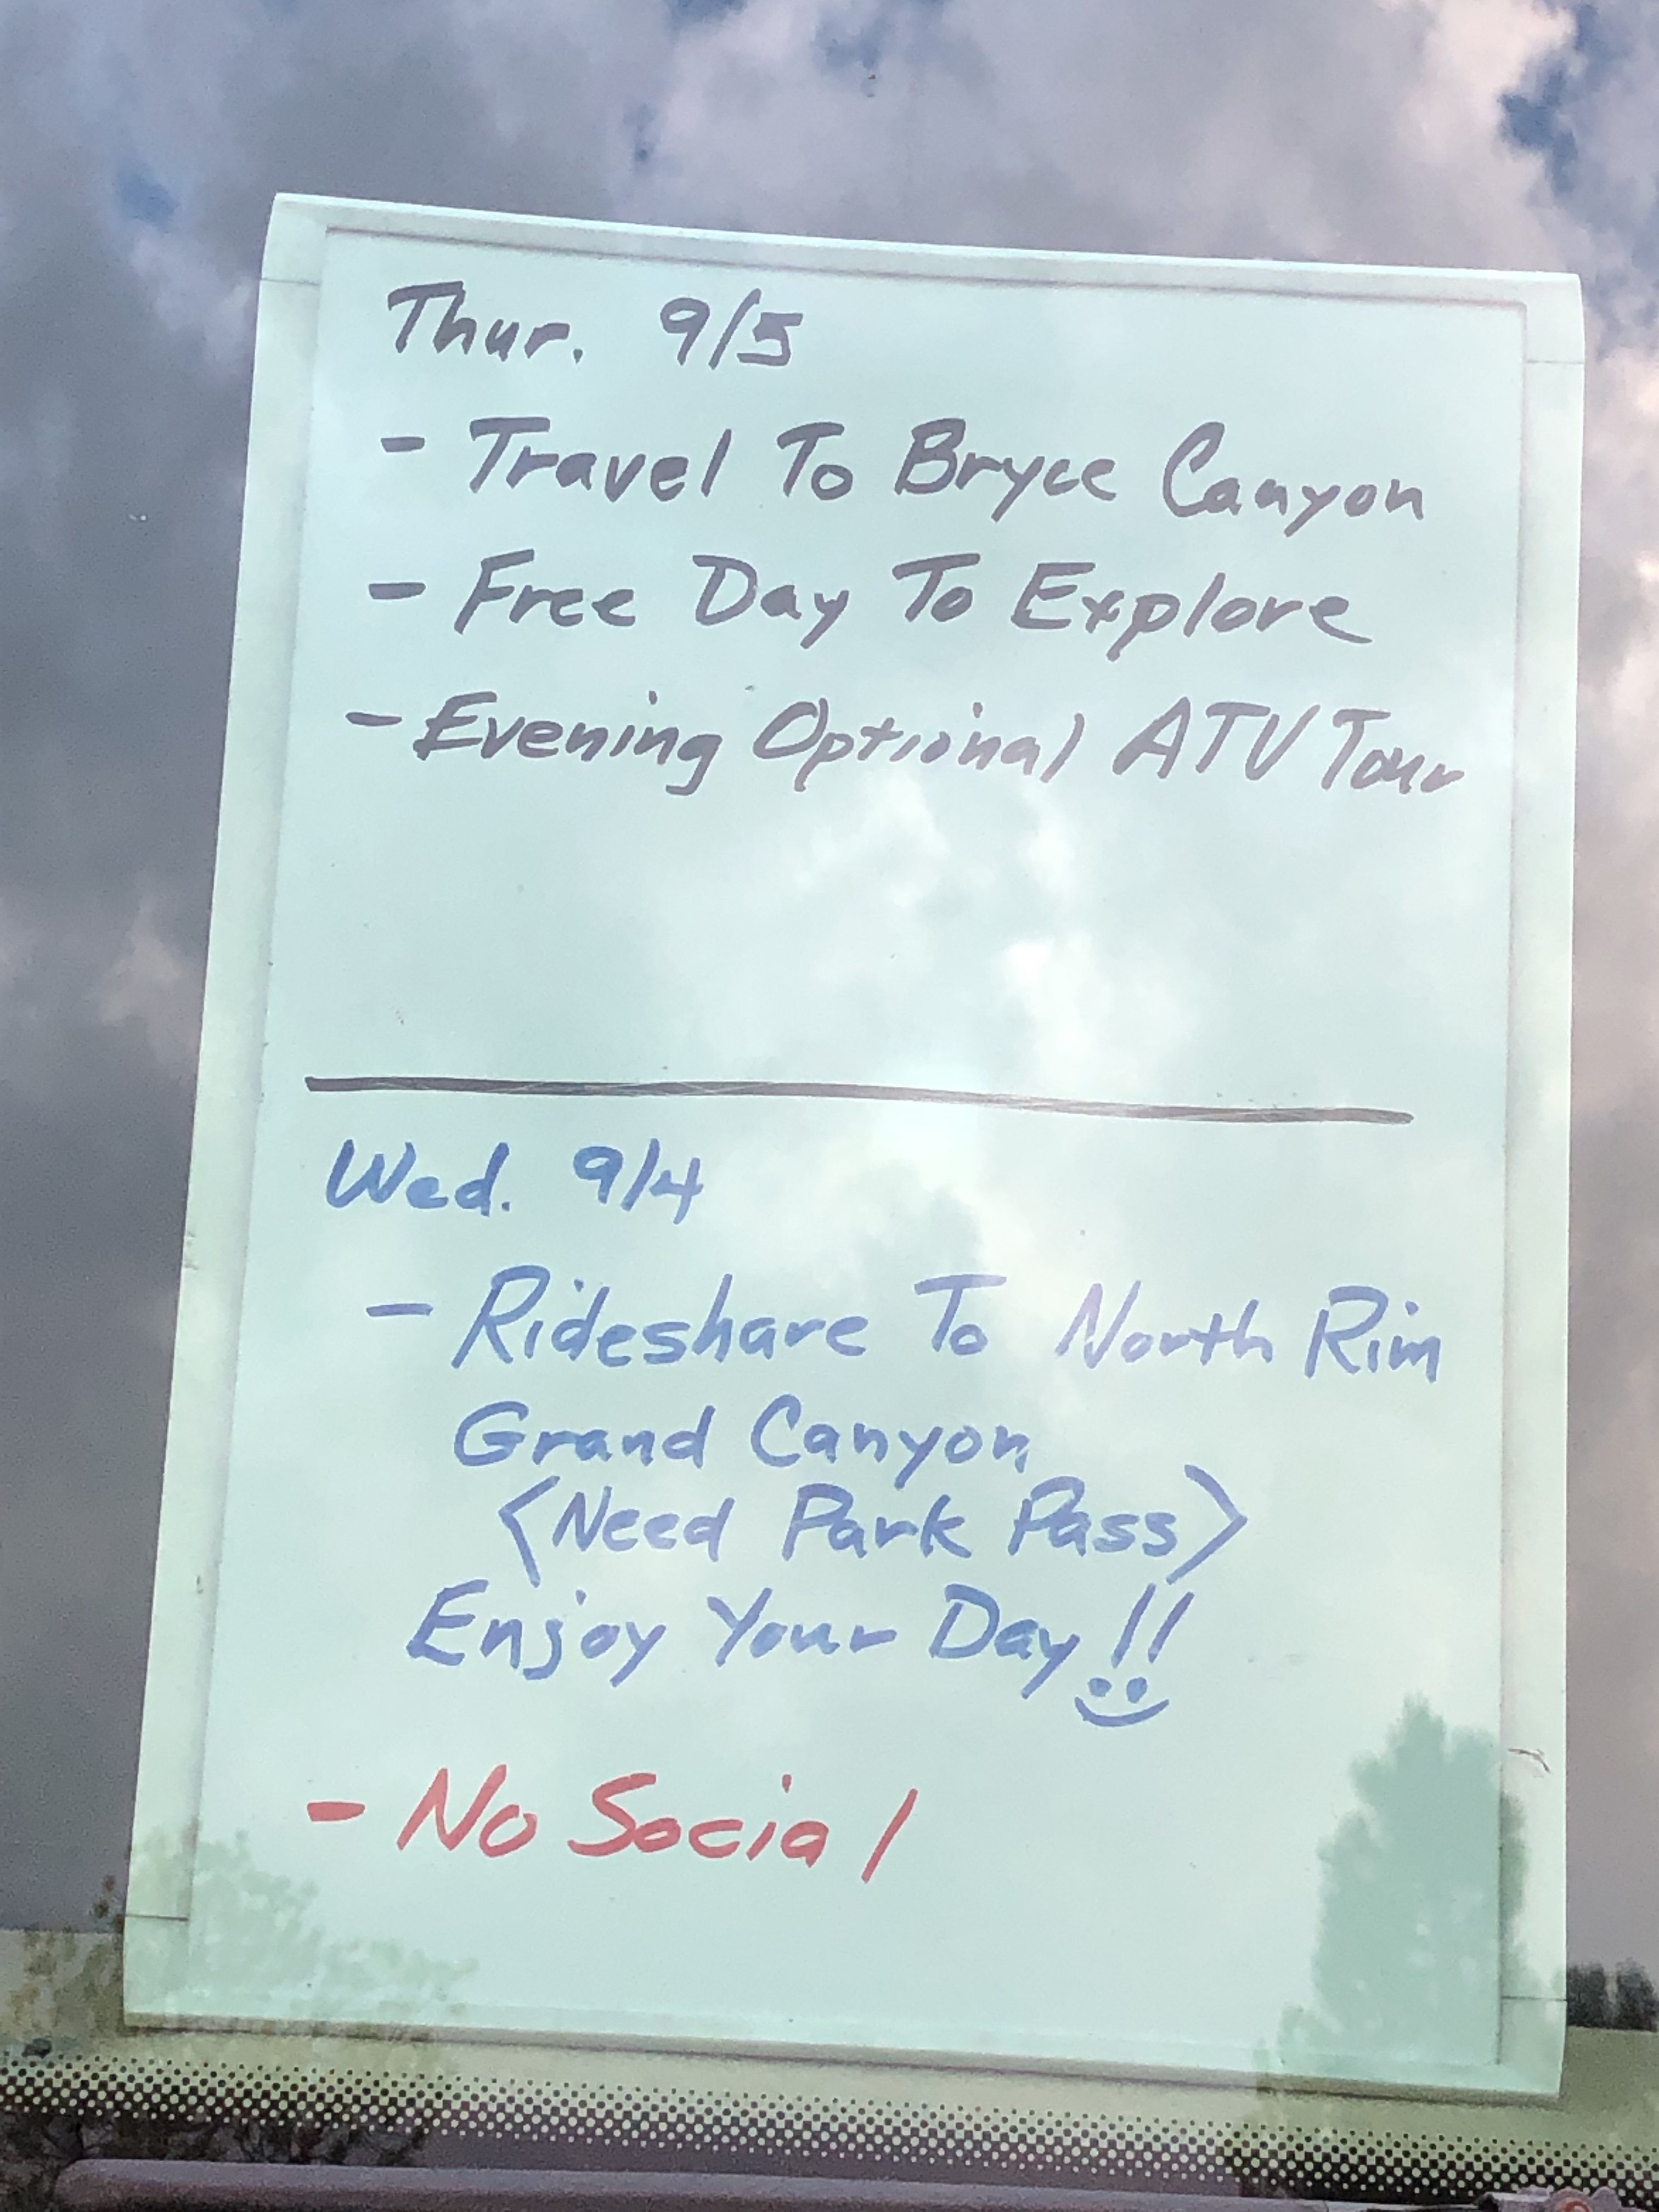 Thur. 9/5
- Travel To Bryce Canyon
- Free Day To Explore
- Evening Optional ATV Tour
Wed. 9/4
- Rideshare To North Rim
Grand Canyon
<Need Park Pass>
Enjoy Your Day!!
- No Social